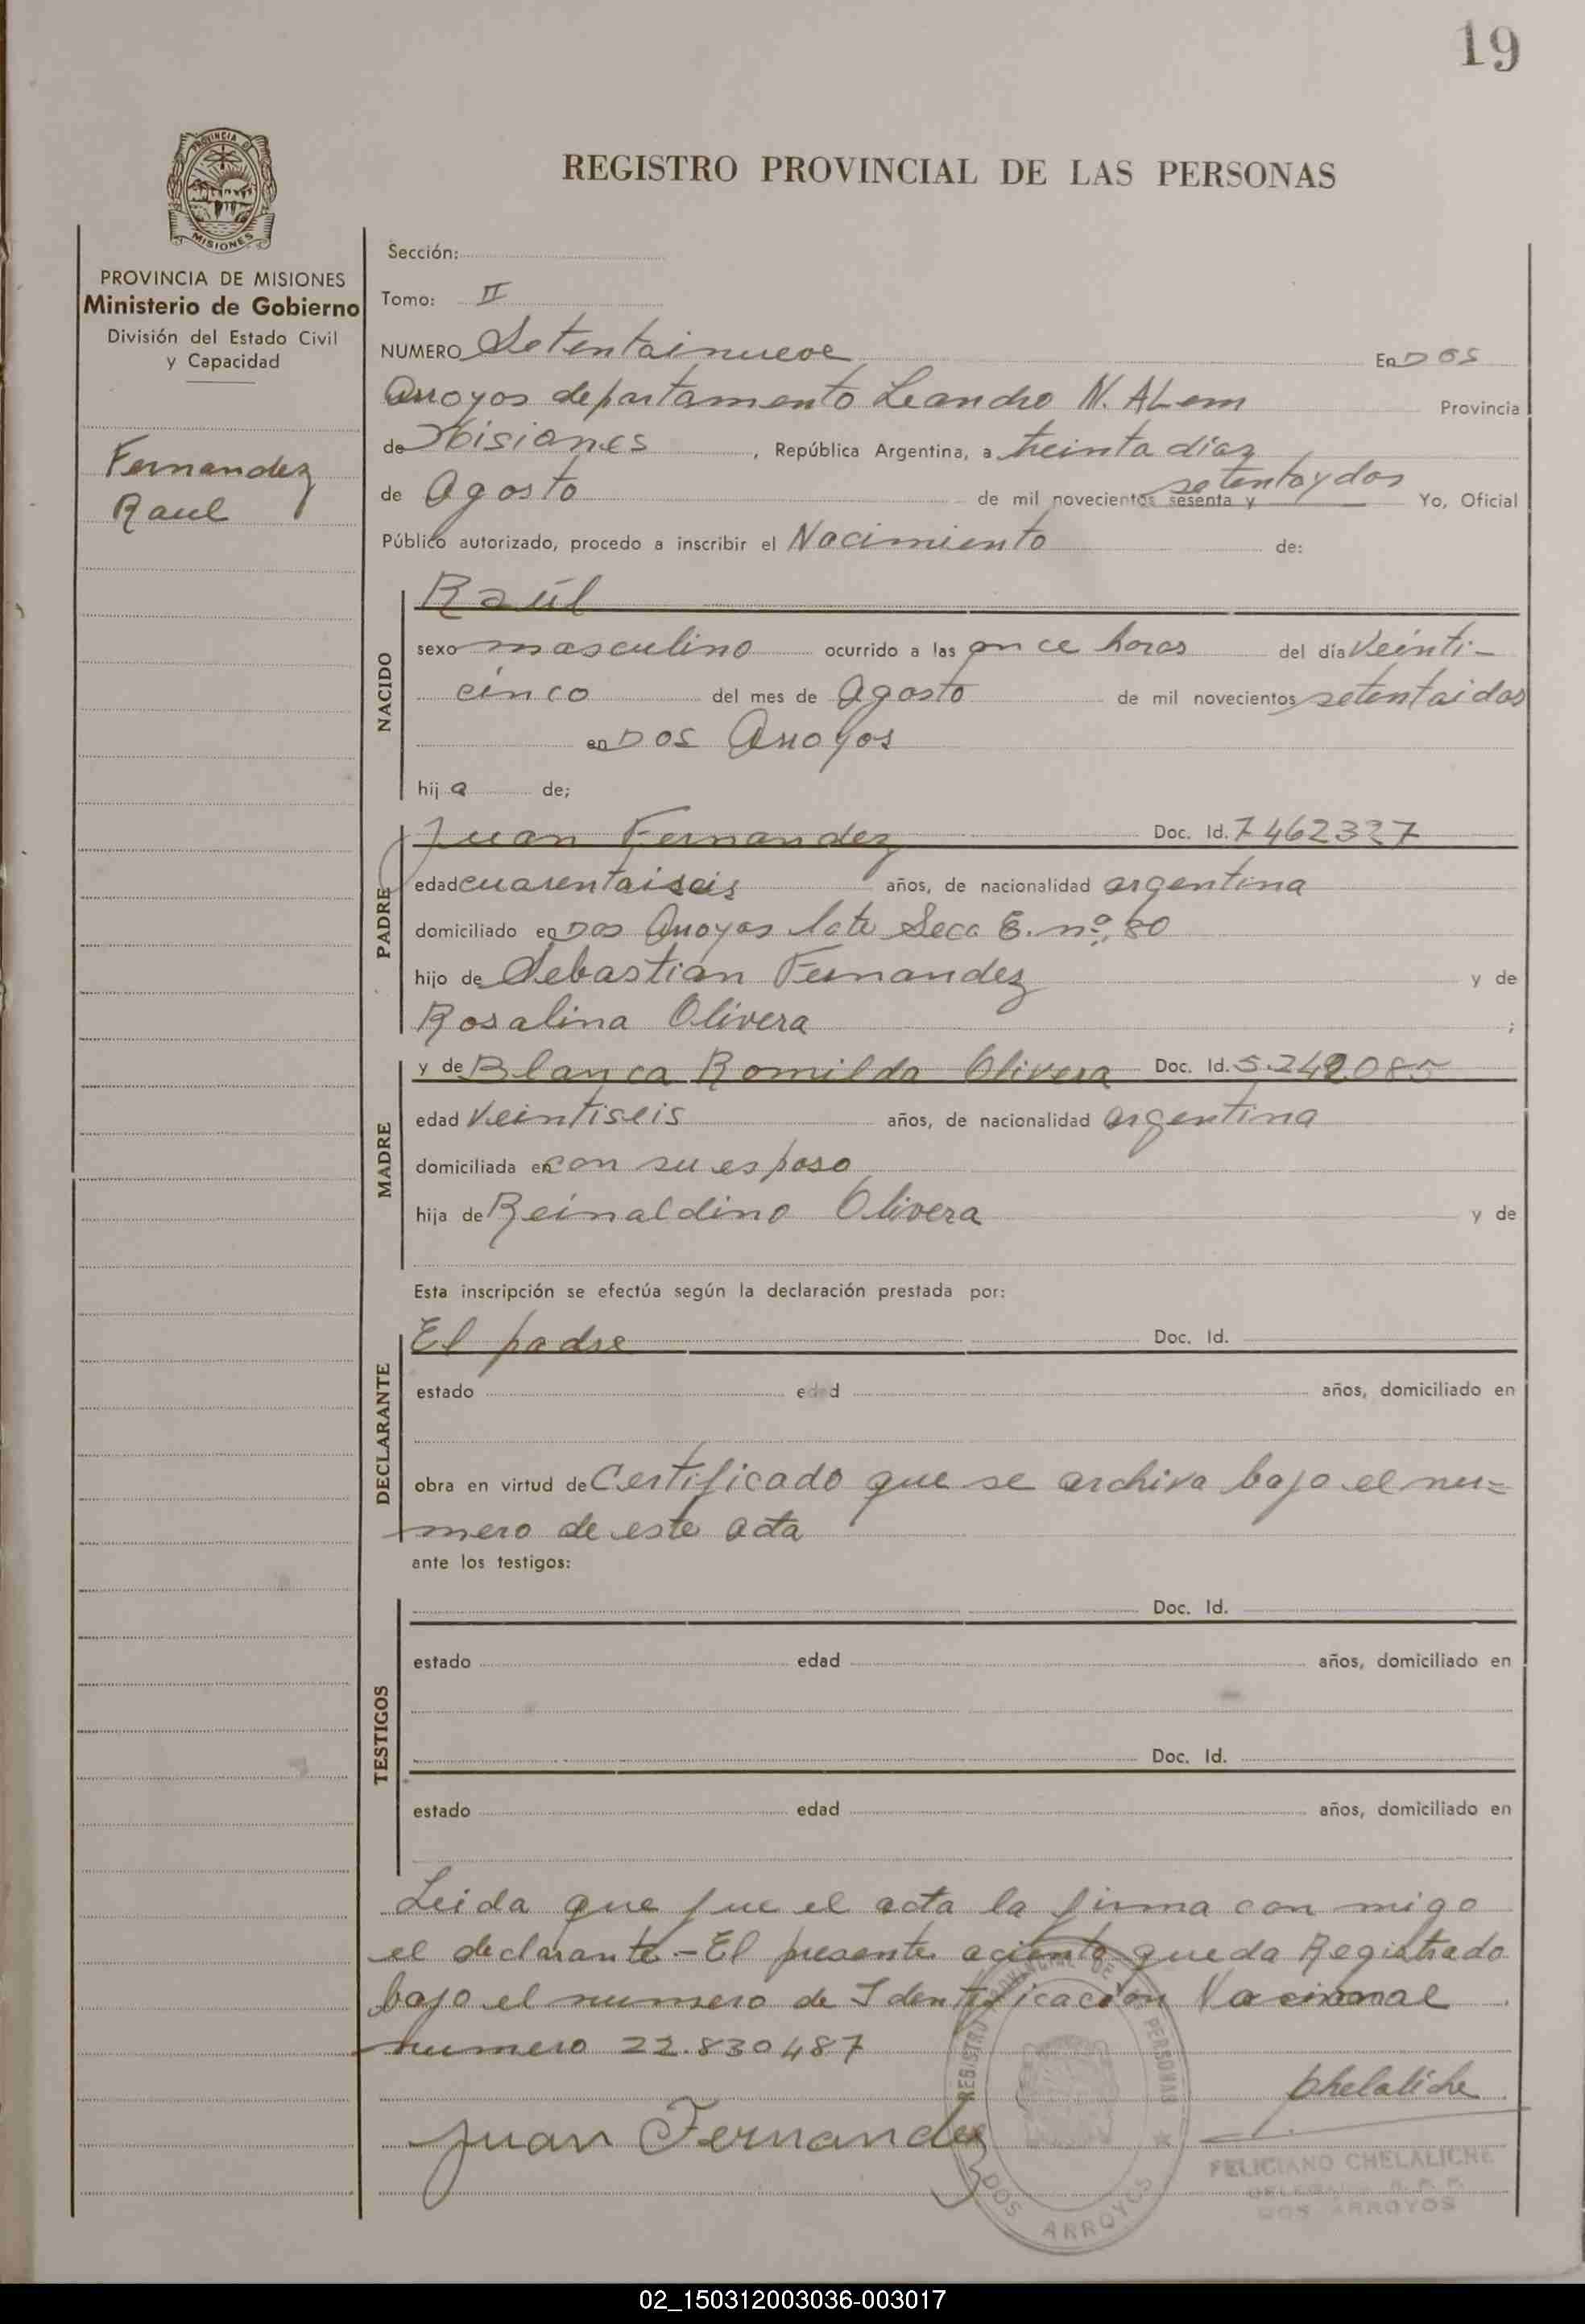 19
PROVINCIA DE
MISIONES
REGISTRO PROVINCIAL DE LAS PERSONAS
PROVINCIA DE MISIONES
Ministerio de Gobierno
División del Estado Civil
y Capacidad
Fernandez
Raul
Sección:
Tomo: II
NUMERO Setentainueve En DOS
Arroyos departamento Leandro N. ALem Provincia
de Misiones, República Argentina, a treinta días
de Agosto de mil novecientos sesenta y setentaydos Yo, Oficial
Público autorizado, procedo a inscribir el Nacimiento de:
NACIDO
Raúl
sexo masculino ocurrido a las once horas del día Veinti-
cinco del mes de Agosto de mil novecientos setentaidos
en DOS Arroyos
hij a de;
PADRE
Juan Fernandez Doc. Id. 7462327
edad cuarentaiseis años, de nacionalidad argentina
domiciliado en Dos Arroyos lote Secc B. nº 80
hijo de Sebastian Fernandez y de
Rosalina Olivera ;
MADRE
y de Blanca Romilda Olivera Doc. Id. 5.242085
edad Veintiseis años, de nacionalidad argentina
domiciliada en con su esposo
hija de Reinaldino Olivera y de
Esta inscripción se efectúa según la declaración prestada por:
DECLARANTE
El padre Doc. Id.
estado edad años, domiciliado en
obra en virtud de Certificado que se archiva bajo el nu=
mero de este acta
ante los testigos:
TESTIGOS
Doc. Id.
estado edad años, domiciliado en
Doc. Id.
estado edad años, domiciliado en
Leida que fue el acta la firma con migo
el declarante - El presente aciento queda Registrado
bajo el numero de Identificación Nacional
numero 22.830487
Juan Fernandez
REGISTRO PROVINCIAL DE PERSONAS
DOS ARROYOS
Chelaliche
FELICIANO CHELALICHE
DELEGADO R. P. P.
DOS ARROYOS
02_150312003036-003017